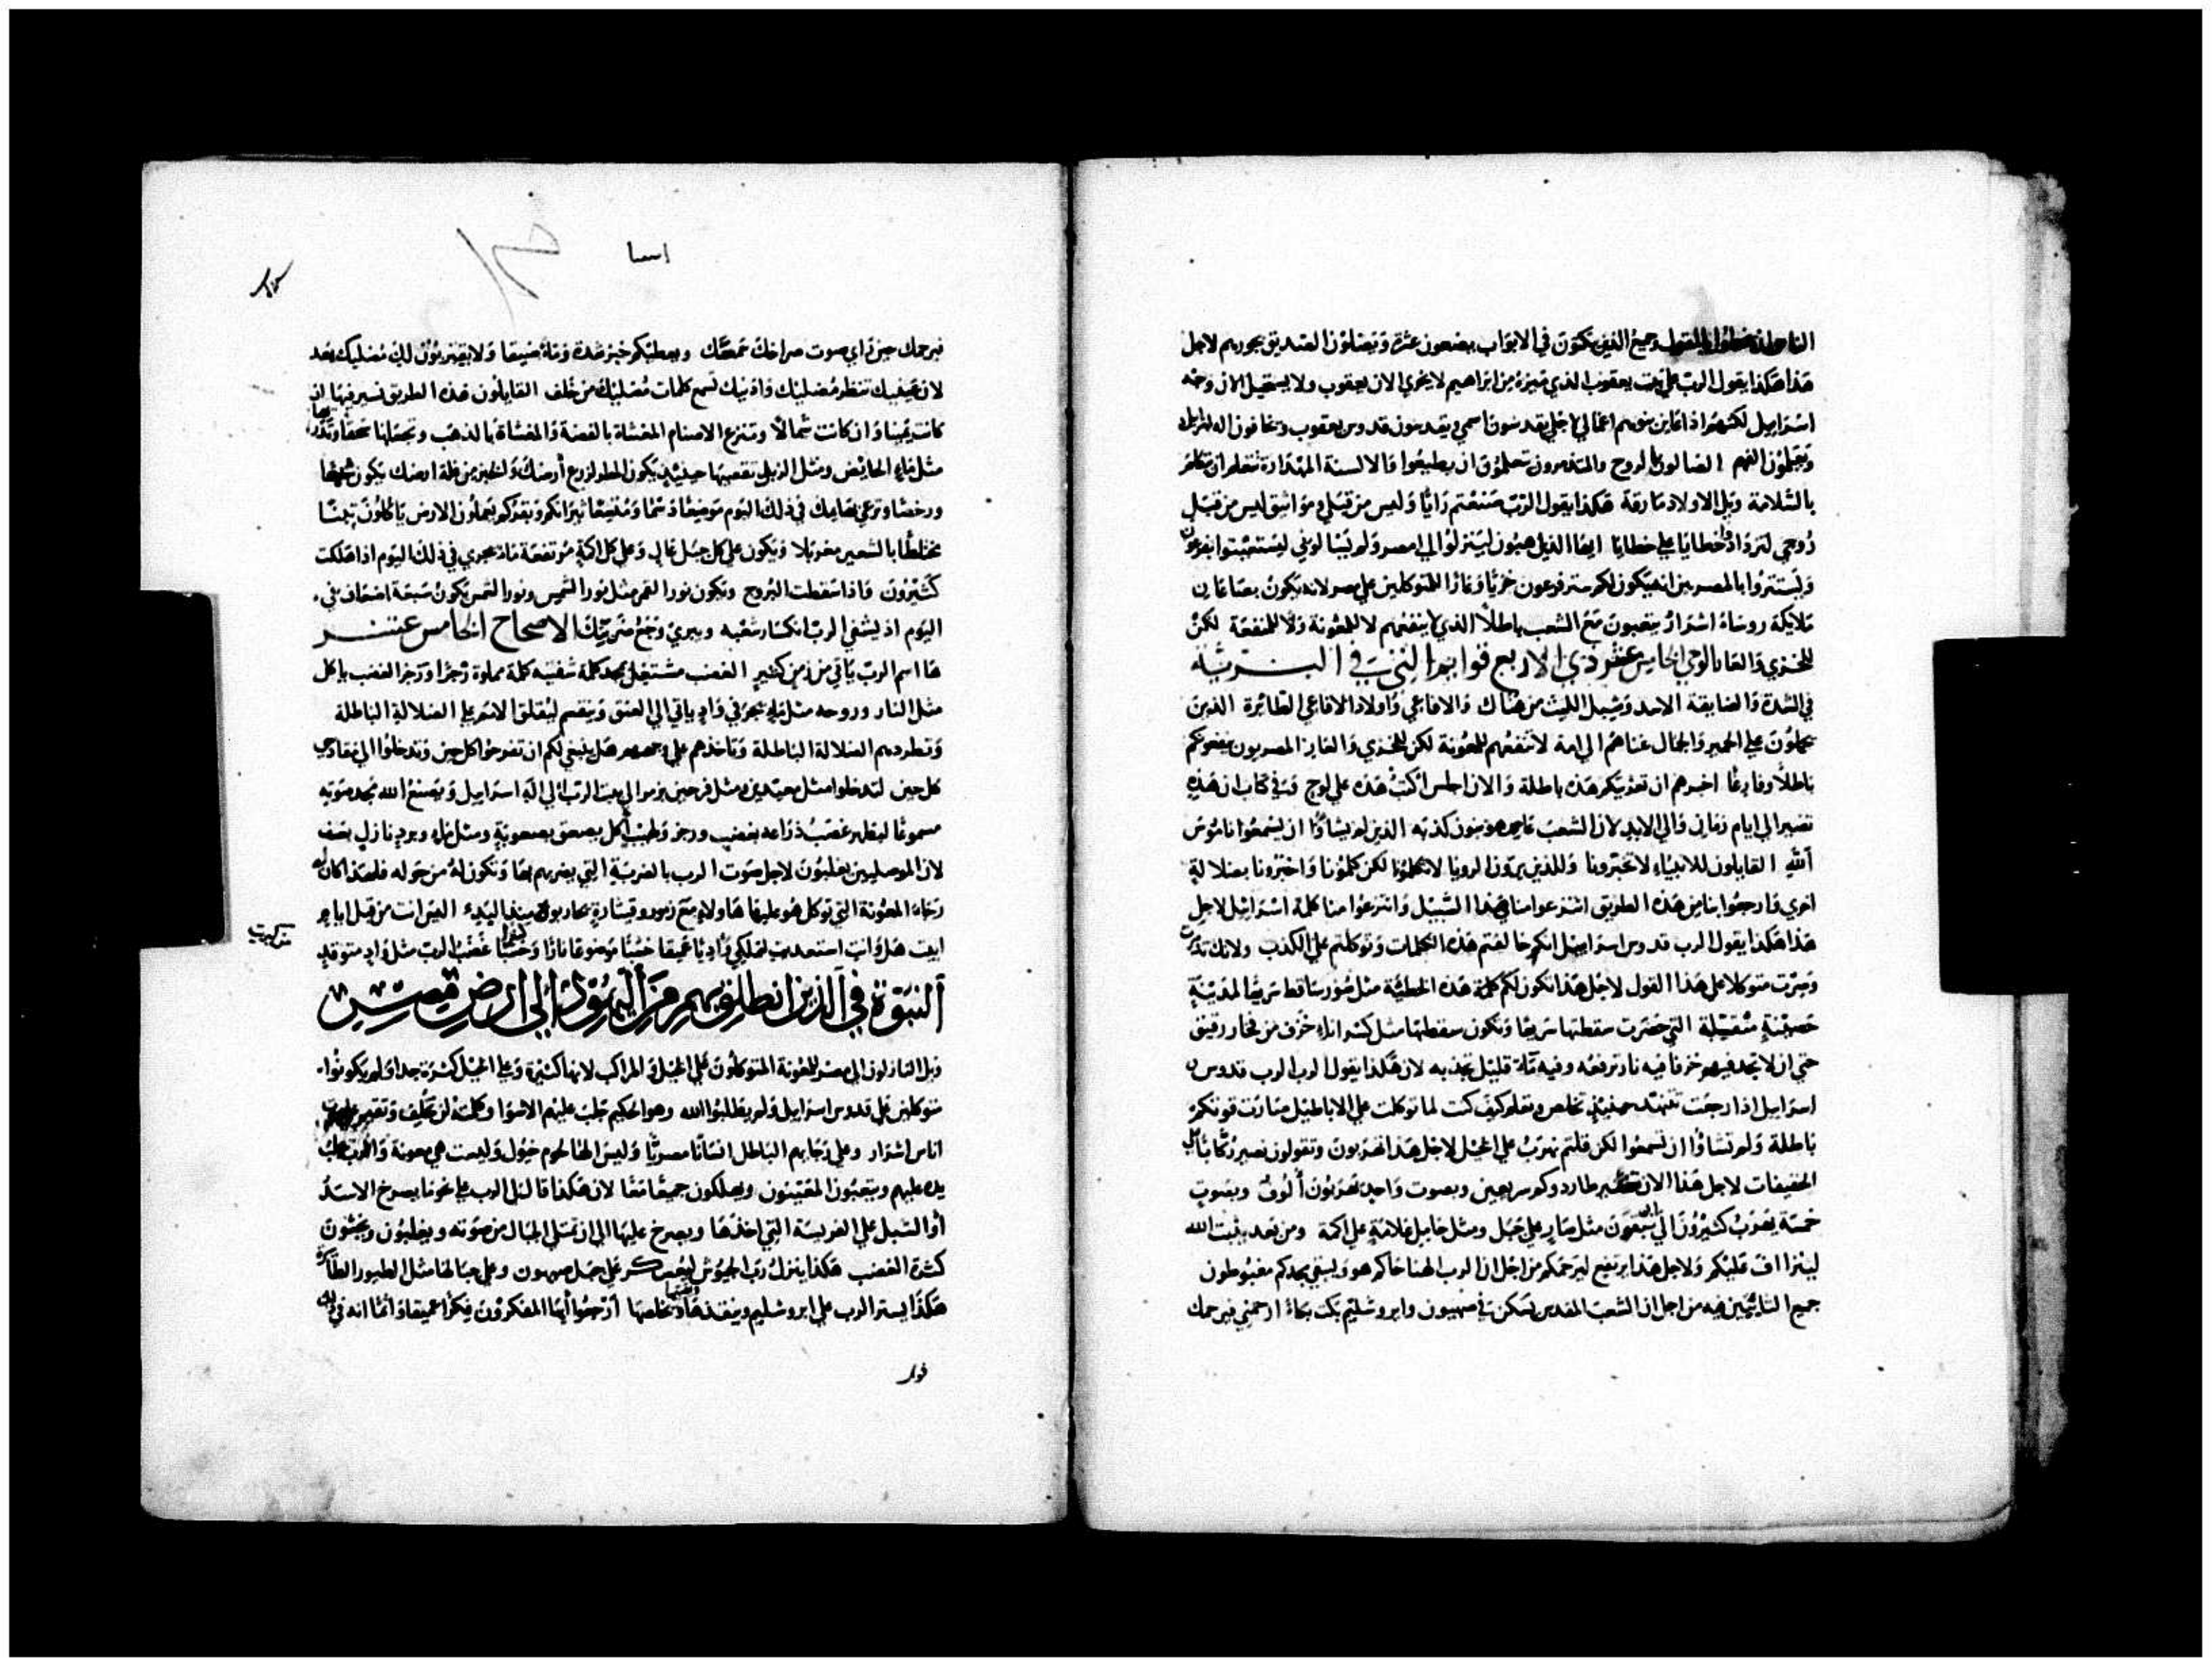 وجميع الذين تكون في الابواب يضعون عثرة ويضلون الصديق بجورهم لاجل
هذا هكذا يقول الرب علي بيت يعقوب الذي ميزه من ابراهيم لا يخزي الان يعقوب ولا يستحيل الان وجه
اسراييل لكنهم اذا عاين بنوهم اعمالي لاجلي يقدسون اسمي ويقدسون قدوس يعقوب ويخافون اله اسراييل
الضالون بالروح والمتذمرون يتعلمون ان يطيعوا والالسنة
بالسلامة ويل الاولاد مارقة هكذا يقول الرب صنعتم رايا وليس من قبلي ومواثيق ليس من قبل
روحي لتزدادوا خطايا علي خطايا ايضا الذين هبون لينزلوا الي مصر ولم يسالوني ليستغيثوا بفرعون
ويستتروا بالمصريين انه يكون لكم ستر فرعون خزيا وعارا للمتوكلين علي مصر لانه يكون بصاعان
ملايكة روساء اشرار يتعبون مع الشعب باطلا الذي لا ينفعهم لا للمعونة ولا للمنفعة لكن
للخزي والعار الوحي الخامس عشر ذي الاربع قوايم التي في البرية
في الشدة والضايقة الاسد وشبل الليث من هناك والافاعي واولاد الافاعي الطائرة الذين
يحملون علي الحمير والجمال غناهم الي امة لا تنفعهم للمعونة لكن للخزي والعار المصريون ينفعونكم
باطلا وفارغا اخبرهم ان تعزيتكم هذه باطلة والان اجلس اكتب هذه علي لوح وفي كتاب ان هذه
تصير الي ايام زمان والي الابد لان الشعب عاص هو بنون كذبه الذين لم يشاوا ان يسمعوا ناموس
الله القايلون للانبياء لا تخبرونا وللذين يرون الرويا لا تكلمونا لكن كلمونا واخبرونا بضلالة
اخري وارجعوا بنا من هذه الطريق انتزعوا منا هذا السبيل وانتزعوا منا كلمة اسراييل لاجل
هذا هكذا يقول الرب قدوس اسراييل انكم خالفتم هذه الكلمات وتوكلتم علي الكذب ولانك تذمرت
وصرت متوكلا علي هذا القول لاجل هذا تكون لكم هذه الخطيئة مثل سور ساقط سريعا لمدينة
حصينة التي حضرت سقطتها سريعا وتكون سقطتها مثل كسر اناء خزف من فخار رقيق
حتي ان لا تجد فيهم خزفا فيه نار ترفعه وفيه ماء قليل تجذبه لان هكذا يقول الرب الرب قدوس
اسراييل اذا رجعت تتنهد حينيذ تخلص وتعلم كيف كنت لما توكلت علي الاباطيل صارت قوتكم
باطلة ولم تشاوا ان تسمعوا لكن قلتم نهرب علي الخيل لاجل هذا تهربون وتقولون نصير ركابا علي
الخفيفات لاجل هذا الان طاردوكم سريعين وبصوت واحد تهربون الوف وبصوت
خمسة يهرب كثيرون الي ان تبقون مثل صار علي جبل ومثل حامل علامة علي اكمة ومن بعد يثبت الله
ليتراف عليكم ولاجل هذا يرتفع ليرحمكم من اجل ان الرب الهنا حاكم هو ويبقي مجدكم مغبوطون
جميع الثابتين فيه من اجل ان الشعب المقدس يسكن في صهيون وايروشليم بكت بكاء ارحمني فيرحمك
اسا
فيرحمك حين راي صوت صراخك سمعك ويعطيكم خبز شدة وماء ضيقا ولا يقتربون اليك مضليك بعد
لان عينيك تنظر مضليك واذنيك تسمع كلمات مضليك من خلف القايلون هذه الطريق نسير فيها ان
كانت يمينا وان كانت شمالا وتنزع الاصنام المغشاة بالفضة والمغشاة بالذهب وتجعلها سحقا
مثل ماء الحايض ومثل الزبل تقصيها حينيذ يكون المطر لزرع أرضك والخبز من غلة ارضك يكون شبعا
ورخصا وترعي بهايمك في ذلك اليوم موضعا دسما ومتسعا ثيرانكم وبقركم يعملون الارض ياكلون تبنا
مختلطا بالشعير مغربلا ويكون علي كل جبل عال وعلي كل اكمة مرتفعة ماء يجري في ذلك اليوم اذا هلكت
كثيرون واذا سقطت البروج ويكون نور القمر مثل نور الشمس ونور الشمس يكون سبعة اضعاف في
اليوم اذ يشفي الرب انكسار شعبه ويبري وجع ضربتك الاصحاح الخامس عشر
ها اسم الرب ياتي من زمن كثير الغضب مشتعل بمجد كلمة شفتيه كلمة مملوة رجزا ورجز الغضب ياكل
مثل النار وروحه مثل ماء تجري في واد ياتي الي العنق وينقسم ليقلق الامم علي الضلالة الباطلة
وتطردهم الضلالة الباطلة وتاخذهم علي وجوههم هل ينبغي لكم ان تفرحوا كل حين وتدخلوا الي مقادسي
كل حين لتدخلوا مثل معيدين ومثل فرحين بزمر الي بيت الرب الي اله اسراييل ويصنع الله مجد صوته
مسموعا ليظهر غضب ذراعه بغضب ورجز ولهيب ياكل يصعق بصعوبة ومثل ماء وبرد نازل بعنف
لان الموصليين يغلبون لاجل صوت الرب بالضربة التي يضربهم بها وتكون له من حوله فلهذا كان له
رجاء المعونة التي توكل هو عليها هاولاء مع زمور وقيثارة يحاربونه ضد البدء اليس انت من قبل ايام
ابيت هل وانت استعديت لتملك واديا عميقا خشبا موضوعا نارا وخشبا غضب الرب مثل واد متوقد
مثل كبريت
ألنبوة في ألذين انطلق بهم من أليهود إلي ارض مصر
ويل النازلون الي مصر للمعونة المتوكلون علي الخيل والمراكب لانها كثيرة وعلي الخيل كثيرة جدا ولم يكونوا
متوكلين علي قدوس اسراييل ولم يطلبوا الله وهو الحكيم جلب عليهم الاسوا وكلمته لن تخلف وتقيم علي بيت
اناس اشرار وعلي رجايهم الباطل انسانا مصريا وليس الها لحوم خيول وليست هي معونة والرب يجلب
يده عليهم ويتعبون المعينون ويهلكون جميعا معا لان هكذا قال لي الرب علي نحو ما يصرخ الاسد
أو الشبل علي الفريسة التي اخذها ويصرخ عليها الي ان تمتلي الجبال من صوته ويغلبون ويجثون
كثرة الغضب هكذا ينزل رب الجيوش ليعسكر علي جبل صهيون وعلي جبالها مثل الطيور الطايرة
هكذا يستر الرب علي ايروشليم وينقذها ويخلصها أرجعوا أيها المفكرون فكرا عميقا واثما انه في ذلك